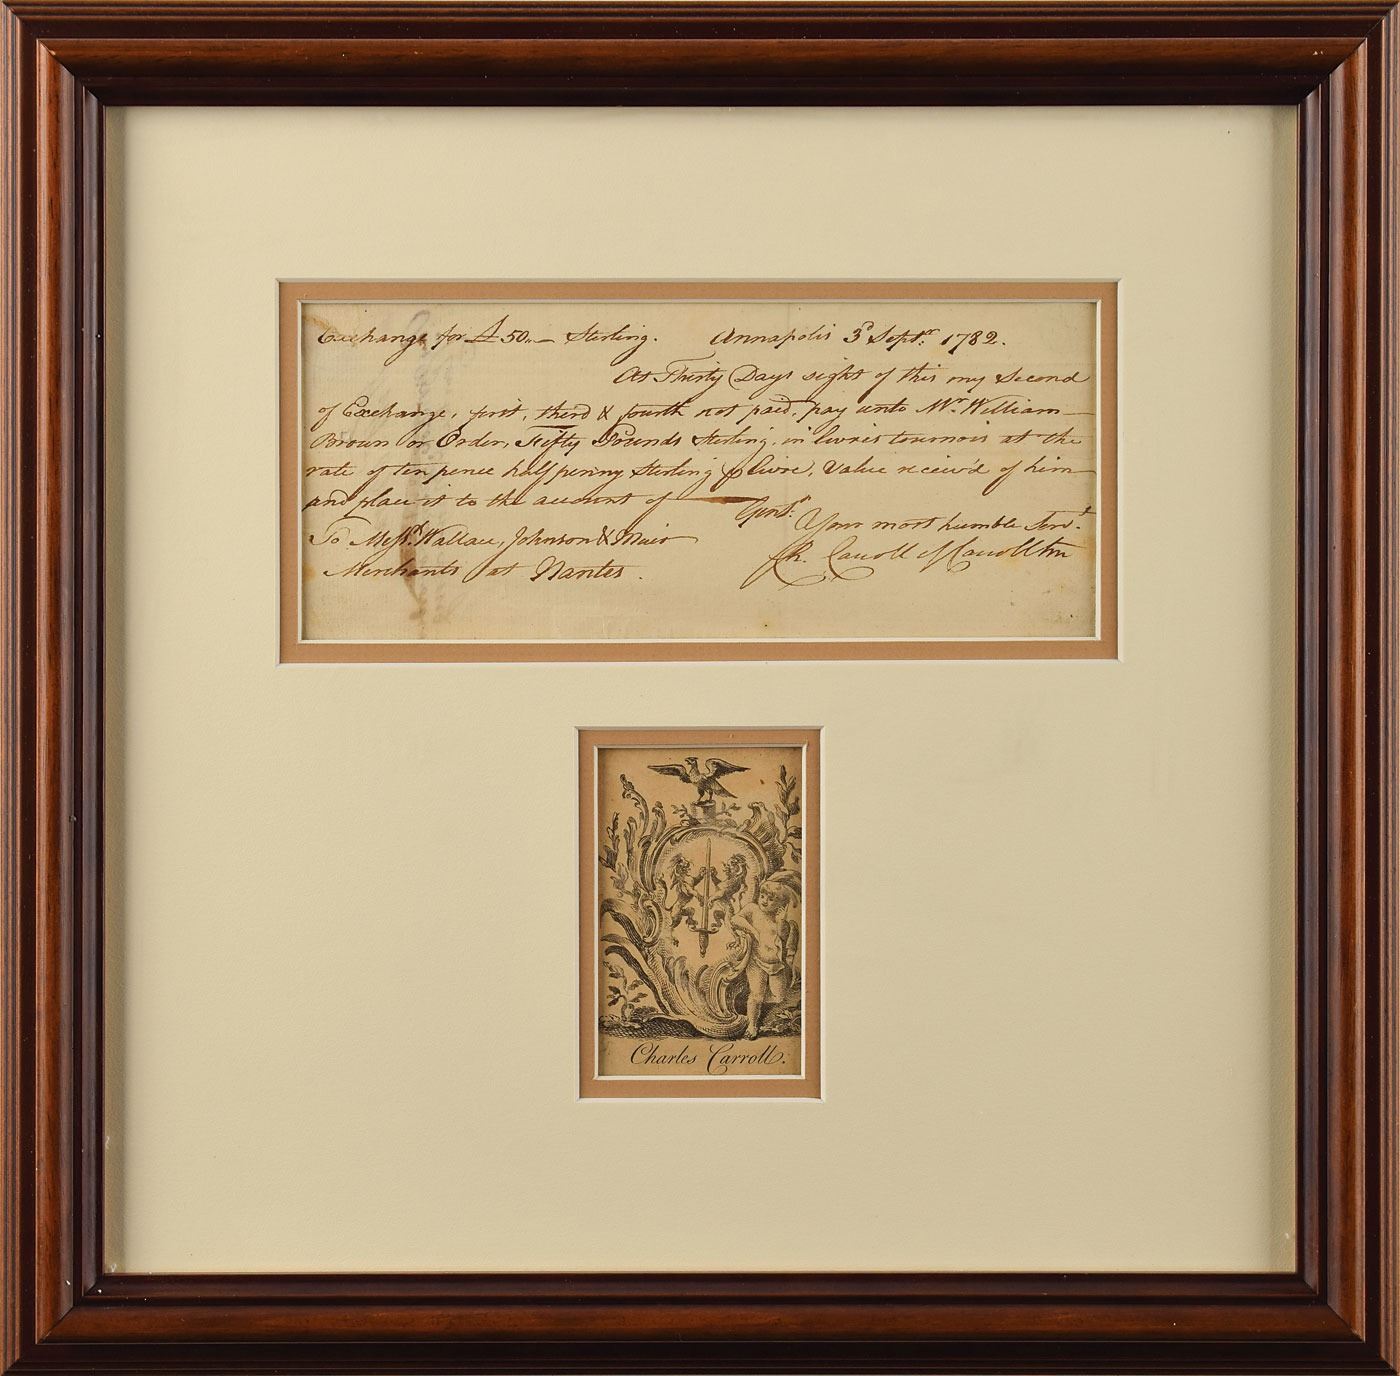 Exchange for £ 50.,- Sterling. Annapolis 3d. Septr: 1782.
At Thirty Days sight of this my Second
of Exchange, first, third & fourth not paid, pay unto Mr. William
Brown or Order, Fifty Pounds Sterling, in livres tournois at the
rate of ten pence half penny Sterling ⅌ livre, Value receiv'd of him
and place it to the account of
Gents.
Your most humble Servt.
To Messrs. Wallace, Johnson & Muir
Ch. Carroll of Carrollton
Merchants at Nantes.
Charles Carroll.